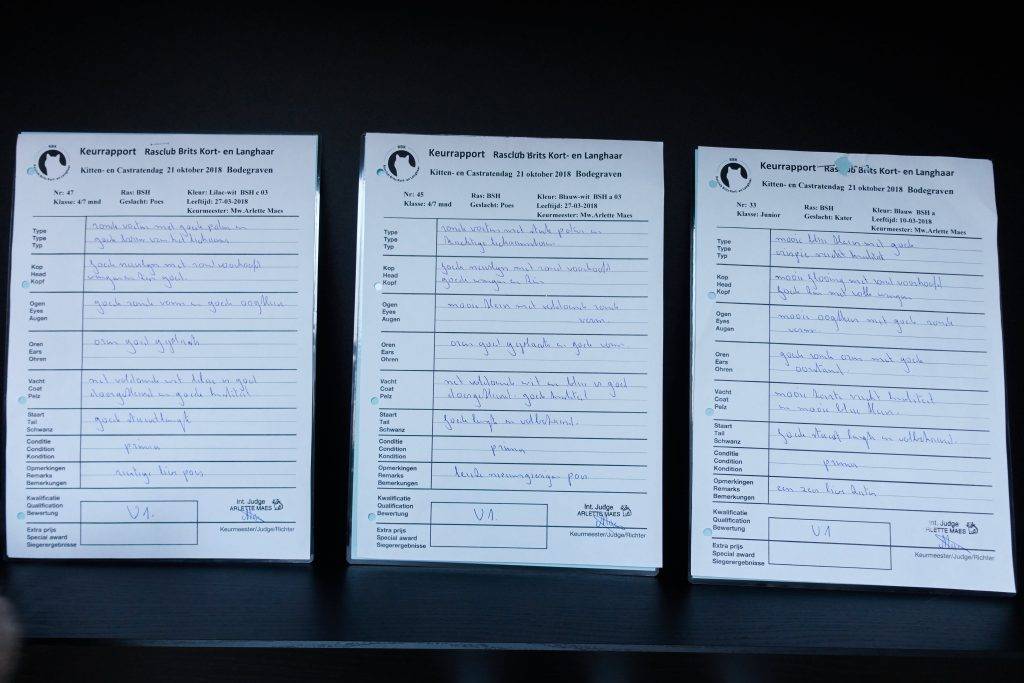 Keurrapport Rasclub Brits Kort- en Langhaar
Kitten- en Castratendag 21 oktober 2018 Bodegraven
Nr: 47 Ras: BSH Kleur: Lilac-wit BSH c 03
Klasse: 4/7 mnd Geslacht: Poes Leeftijd: 27-03-2018
Keurmeester: Mw.Arlette Maes
Type
Type
Typ
ronde vormen met goede poten en
goede bouw van het lichaam
Kop
Head
Kopf
goede neuslijn met rond voorhoofd
wangen en kin goed
Ogen
Eyes
Augen
goede ronde vorm en goede oogkleur
Oren
Ears
Ohren
oren goed geplaatst
Vacht
Coat
Pelz
met voldoende wit kleur is goed
doorgekleurd en goede kwaliteit
Staart
Tail
Schwanz
goede staartlengte
Conditie
Condition
Kondition
prima
Opmerkingen
Remarks
Bemerkungen
rustige lieve poes
Kwalificatie
Qualification
Bewertung
U1.
Int. Judge
ARLETTE MAES
Keurmeester/Judge/Richter
Extra prijs
Special award
Siegerergebnisse
Keurrapport Rasclub Brits Kort- en Langhaar
Kitten- en Castratendag 21 oktober 2018 Bodegraven
Nr: 45 Ras: BSH Kleur: Blauw-wit BSH a 03
Klasse: 4/7 mnd Geslacht: Poes Leeftijd: 27-03-2018
Keurmeester: Mw.Arlette Maes
Type
Type
Typ
ronde vormen met sterke poten en
krachtige lichaamsbouw
Kop
Head
Kopf
goede neuslijn met rond voorhoofd
goede wangen en kin
Ogen
Eyes
Augen
mooie kleur met voldoende ronde
vorm.
Oren
Ears
Ohren
oren goed geplaatst en goede vorm.
Vacht
Coat
Pelz
met voldoende wit en kleur is goed
doorgekleurd. goede kwaliteit
Staart
Tail
Schwanz
goede lengte en volbehaard.
Conditie
Condition
Kondition
prima
Opmerkingen
Remarks
Bemerkungen
leuke nieuwsgierige poes
Kwalificatie
Qualification
Bewertung
U1.
Int. Judge
ARLETTE MAES
Keurmeester/Judge/Richter
Extra prijs
Special award
Siegerergebnisse
Keurrapport Rasclub Brits Kort- en Langhaar
Kitten- en Castratendag 21 oktober 2018 Bodegraven
Nr: 33 Ras: BSH Kleur: Blauw BSH a
Klasse: Junior Geslacht: Kater Leeftijd: 10-03-2018
Keurmeester: Mw.Arlette Maes
Type
Type
Typ
mooie kleur met goede
Kop
Head
Kopf
mooie met rond voorhoofd
goede kin met volle wangen
Ogen
Eyes
Augen
mooie oogkleur met goede ronde
vorm.
Oren
Ears
Ohren
goede ronde oren met goede
oorstand
Vacht
Coat
Pelz
mooie korte vacht kwaliteit
en mooie kleur.
Staart
Tail
Schwanz
goede staart lengte en volbehaard.
Conditie
Condition
Kondition
prima
Opmerkingen
Remarks
Bemerkungen
een zeer lieve kater
Kwalificatie
Qualification
Bewertung
U1
Int. Judge
ARLETTE MAES
Keurmeester/Judge/Richter
Extra prijs
Special award
Siegerergebnisse